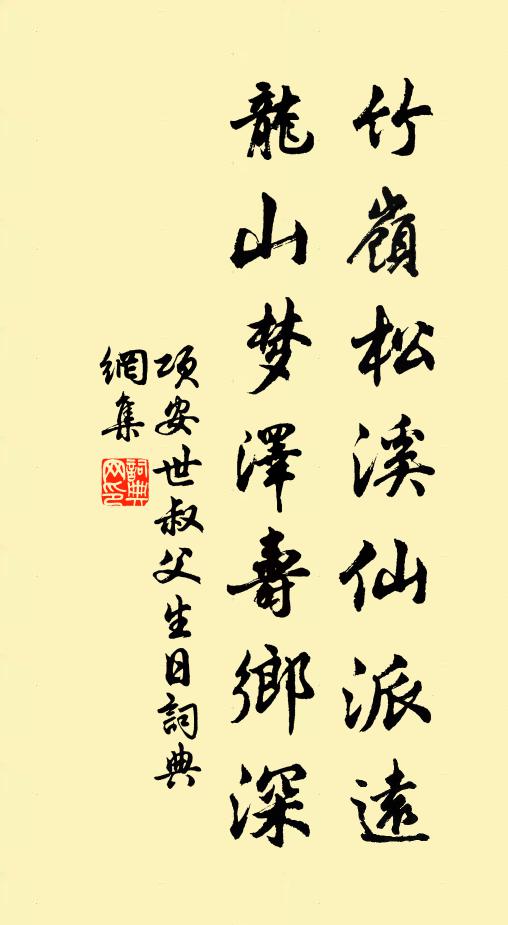 竹嶺松溪仙派遠
龍山梦澤壽鄉深
項安世叔父生日詞典
網集
詞典
网印